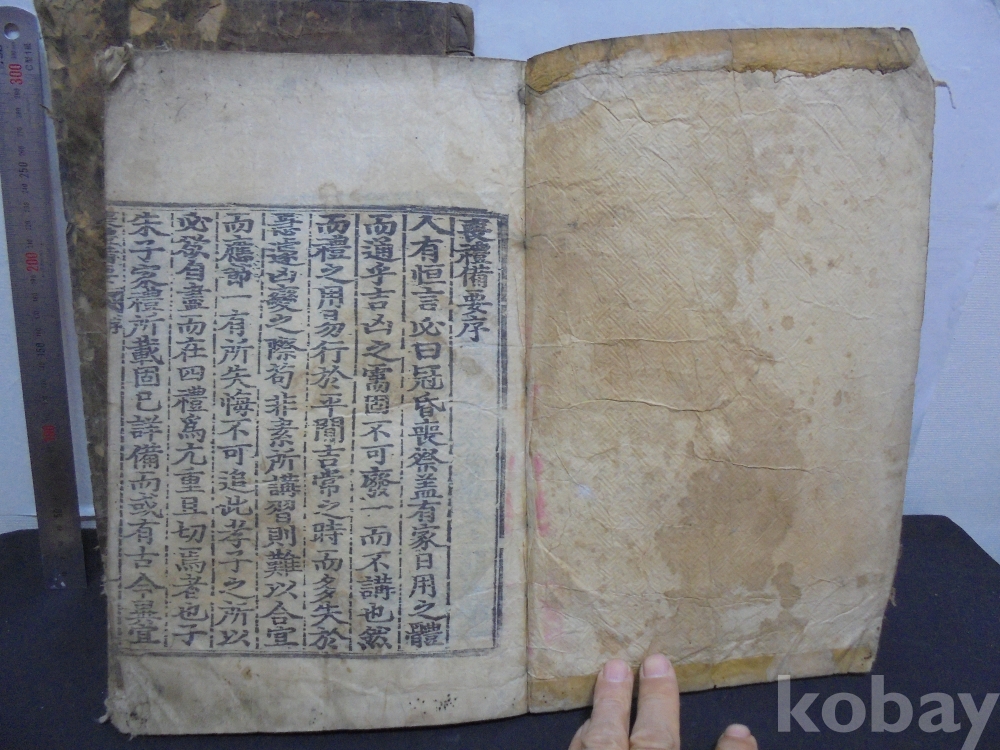 喪禮備要序
人有恒言必曰冠昏喪祭盖有家日用之體
而通乎吉凶之需固不可廢一而不講也然
而禮之用易行於平閒吉常之時而多失於
急遽凶變之際苟非素所講習則難以合宜
而應節一有所失悔不可追此孝子之所以
必欲自盡而在四禮爲尤重且切焉者也子
朱子家禮所載固已詳備而或有古今異宜
300
250
200
kobay